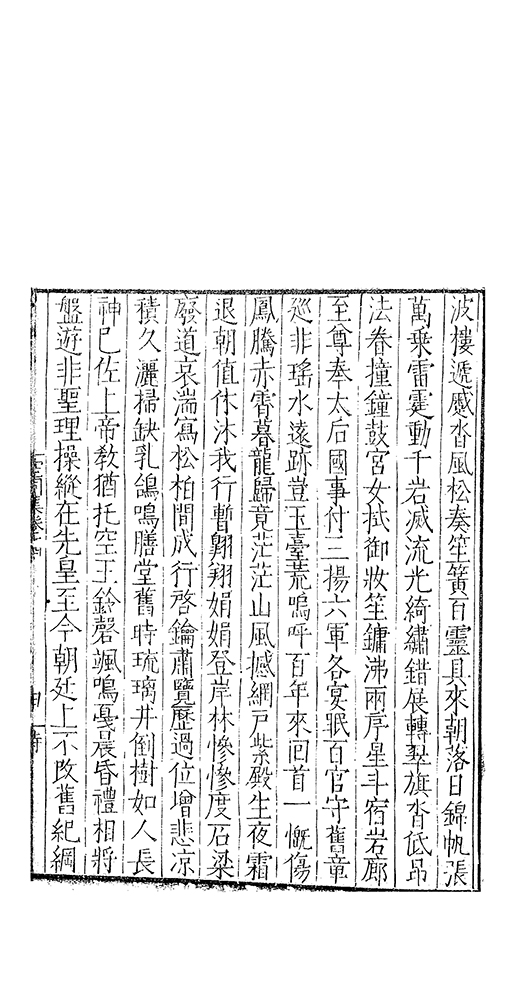 波樓遞慼沓風松奏笙簧百靈具來朝落日錦帆張
萬乗雷霆動千岩滅流光綺繡錯展轉翠旗沓低昂
法眷撞鐘鼓宮女拭御妝笙鏞沸兩序星斗宿岩廊
至尊奉太后國事付三揚六軍各宴眠百官守舊章
廵非瑶水遠跡豈玉臺荒嗚呼百年來回首一慨傷
鳳騰赤霄暮龍歸竟茫茫山風撼網戸紫殿生夜霜
退朝值休沐我行暫翺翔娟娟登岸林慘慘度石梁
廢道哀湍寫松柏間成行啓鑰肅覽歷過位增悲凉
積久灑掃缺乳鴿鳴膳堂舊時琉璃井倒樹如人長
神巳佐上帝敎猶托空王鈴磬颯鳴戛晨昏禮相將
盤遊非聖理操縱在先皇至今朝廷上不改舊紀綱